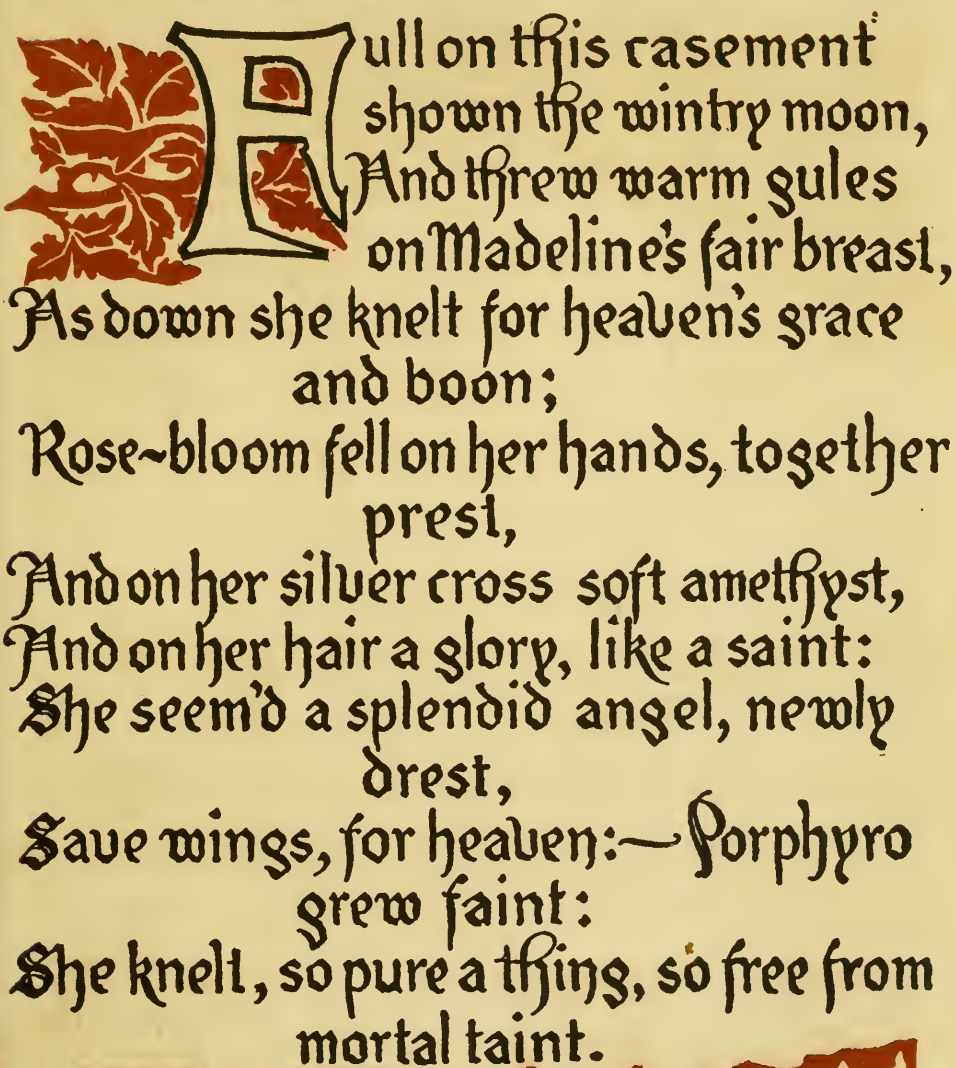 Aull on this casement
shown the wintry moon,
And threw warm gules
on Madeline's fair breast,
As down she knelt for heaven's grace
and boon;
Rose~bloom fell on her hands, together
prest,
And on her silver cross soft amethyst,
And on her hair a glory, like a saint:
She seem'd a splendid angel, newly
drest,
Save wings, for heaven:~Porphyro
grew faint:
She knelt, so pure a thing, so free from
mortal taint.